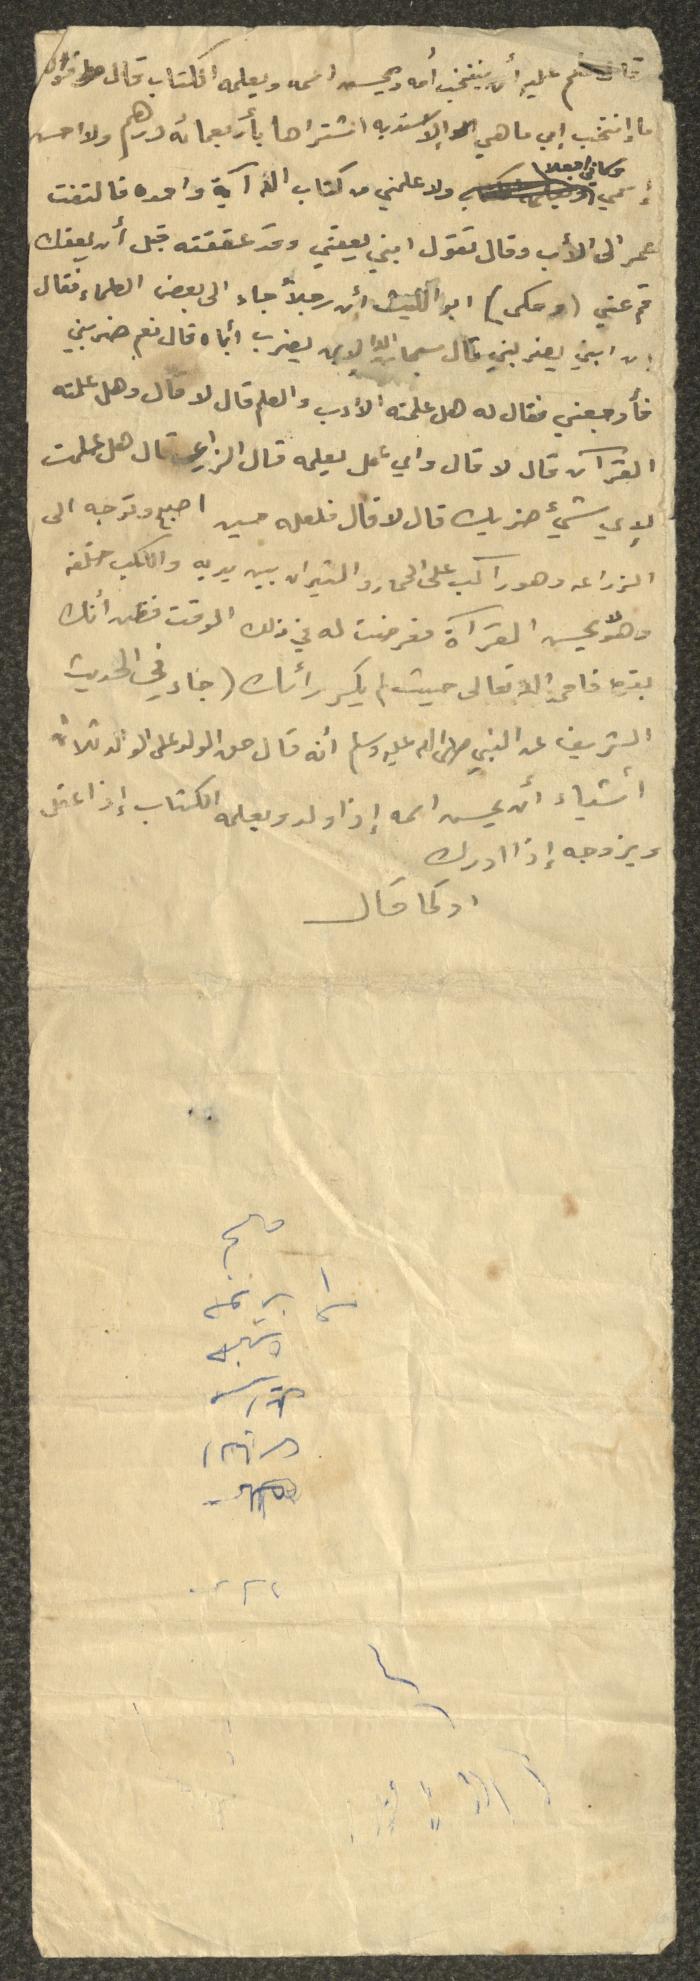 قال نعم عليه أن ينتخب أمه ويحسن اسمه ويعلمه الكتاب قال فوالله
ما إنتخب إمي ما هي إلا سنديه اشتراها بأربعمائة درهم ولا احسن
إسمي سماني جعلا ولا علمني من كتاب الله آية واحده فالتفت
عمر الى الأب وقال تقول ابني يعقني وقد عققته قبل أن يعقك
قم عني (وحكى) ابو الليث أن رجلاً جاء الى بعض العلماء فقال
إن ابني يضربني قال سبحان الله الابن يضرب أباه قال نعم ضربني
فأوجعني فقال له هل علمته الأدب والعلم قال لا قال وهل علمته
القرآن قال لا قال واي عمل يعلمه قال الزراعه قال هل علمت
لإي شيْ ضربك قال لا قال فلعله حين اصبح وتوجه الى
الزراعه وهو راكب على الحمار والثيران بين يديه والكلب خلفه
وهو لا يحسن القرآة فعرضت له في ذلك الوقت فظن أنك
بقره فاحمد الله تعالى حيث لم يكسر رأسك (جاء في الحديث
الشريف عن النبي صلى الله عليه وسلم أنه قال حق الولد على الوالد ثلاثة
أشياء أن يحسن اسمه إذا ولد ويعلمه الكتاب إذا عقل
ويزوجه إذا ادرك
او كما قال